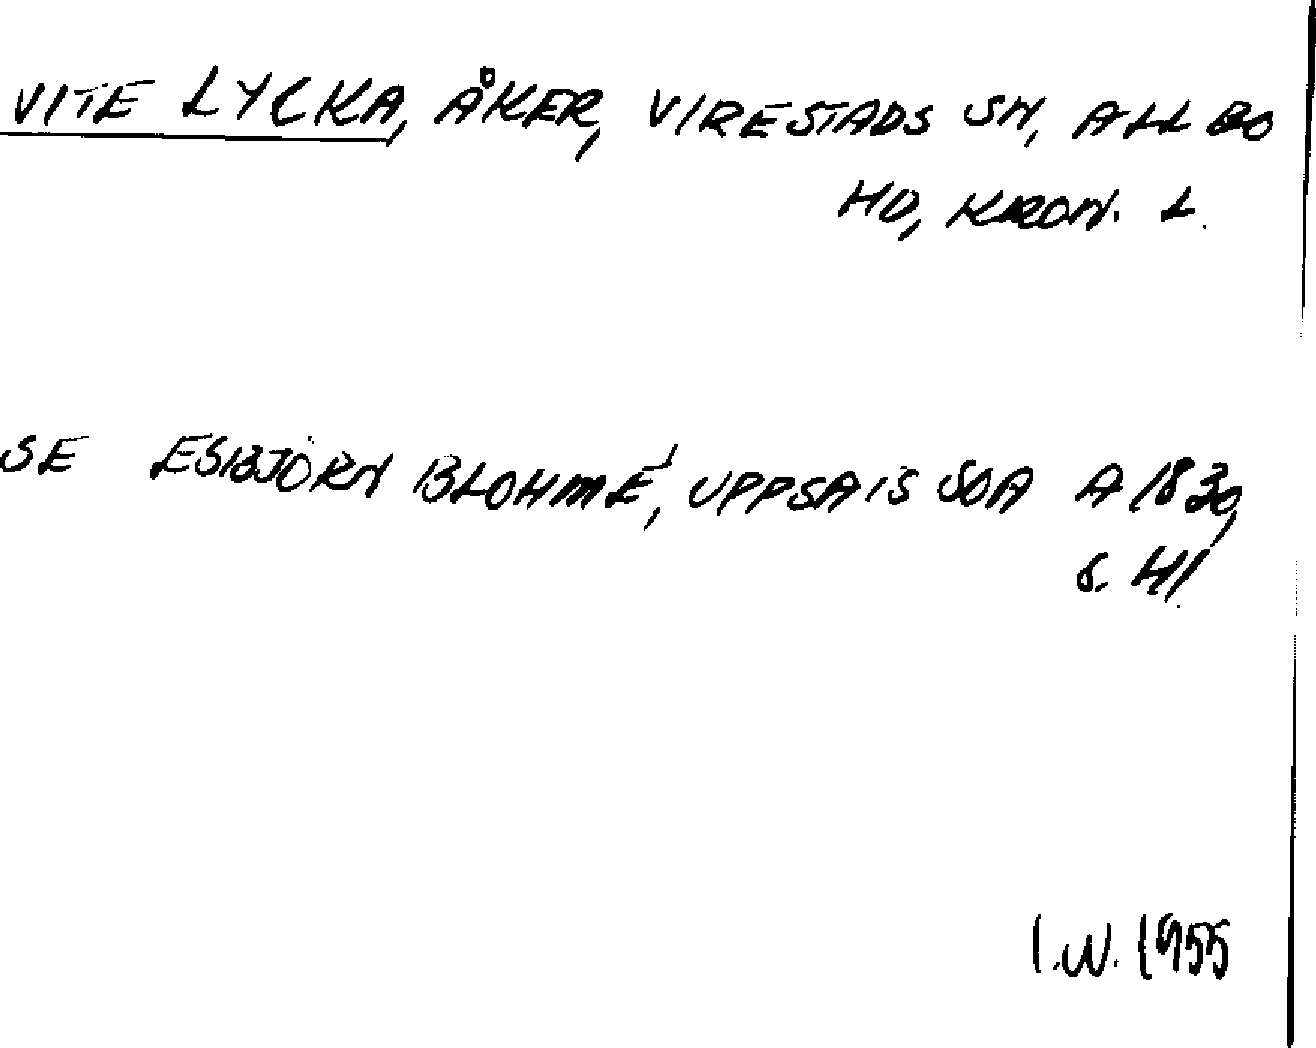 VITE LYCKA, ÅKER, VIRESTADS SN, ALLBO
HD, KRON. L.
SE ESBJÖRN BLOHMÉ, UPPSATS SOA A 1830,
s. 41.
I.W. 1955